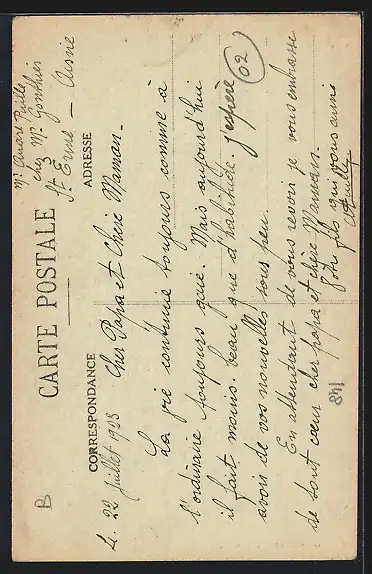 CARTE POSTALE
CORRESPONDANCE
ADRESSE
Mr André Puille
chez Mr Gonthier
St Erme — Aisne
Le 22 juillet 1923
Cher Papa et Chère Maman.
La vie continue toujours comme à
l'ordinaire toujours gaie. Mais aujourd'hui
il fait moins beau que d'habitude. j'espère
avoir de vos nouvelles sous peu.
En attendant de vous revoir je vous embrasse
de tout cœur cher papa et chère Maman.
Vôtre fils qui vous aime
APuille
02
B